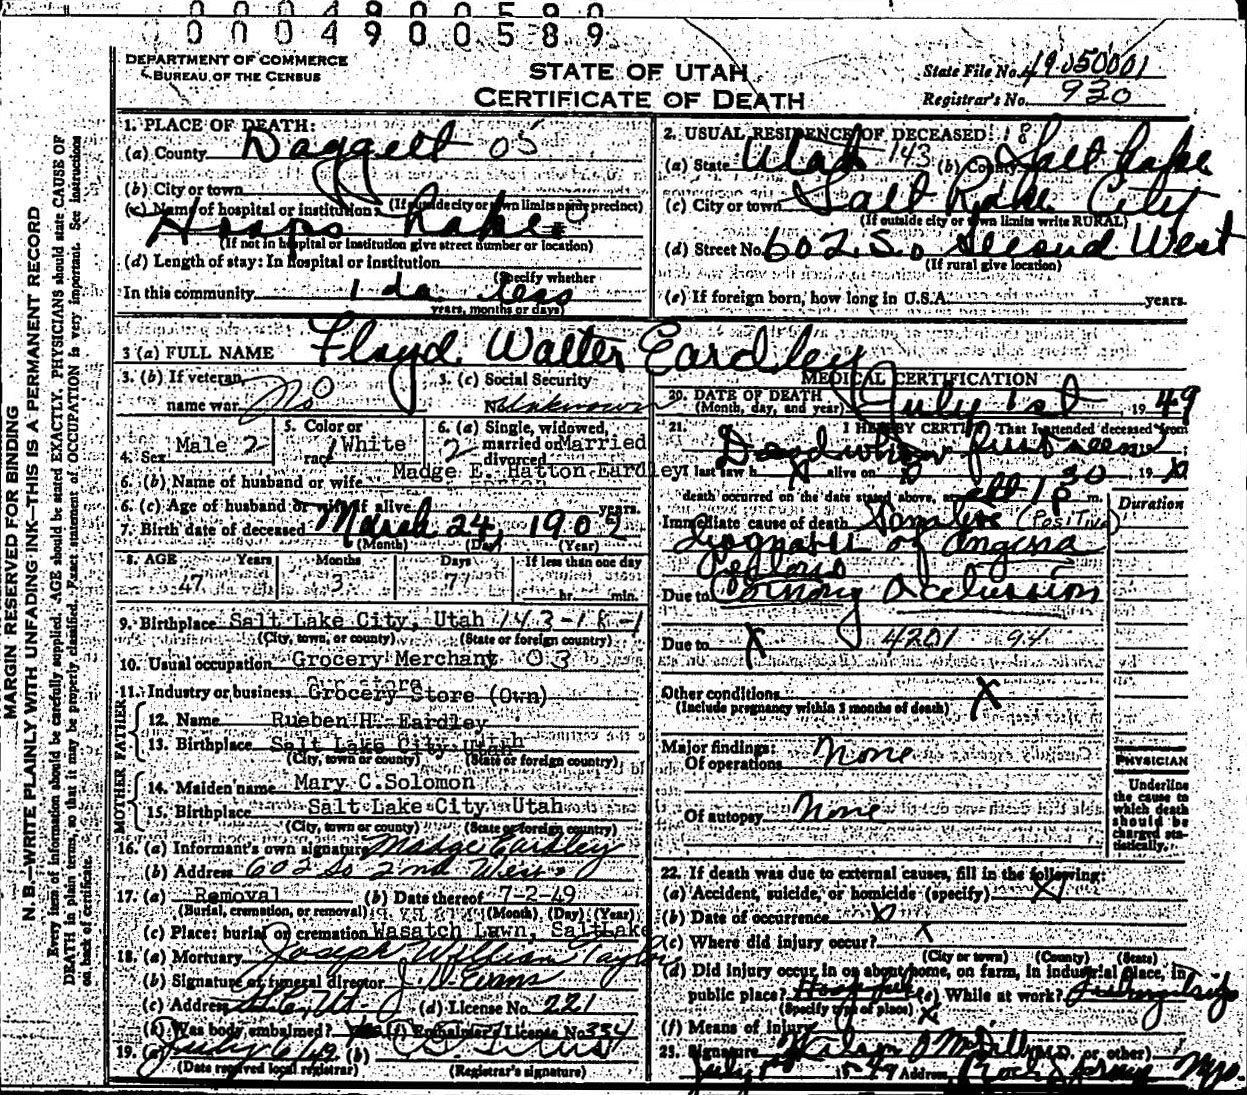 0 0 0 4 9 0 0 5 8 9
DEPARTMENT OF COMMERCE
BUREAU OF THE CENSUS
STATE OF UTAH
CERTIFICATE OF DEATH
State File No. 49050001
Registrar's No. 930
MARGIN RESERVED FOR BINDING
N. B.—WRITE PLAINLY WITH UNFADING INK—THIS IS A PERMANENT RECORD
Every item of information should be carefully supplied. AGE should be stated EXACTLY. PHYSICIANS should state CAUSE OF
DEATH in plain terms, so that it may be properly classified. Exact statement of OCCUPATION is very important. See instructions
on back of certificate.
1. PLACE OF DEATH:
(a) County Daggett 05
(b) City or town
(If outside city or town limits name precinct)
(c) Name of hospital or institution: Hoops Lake
(If not in hospital or institution give street number or location)
(d) Length of stay: In hospital or institution
(Specify whether
In this community 1 da. less
years, months or days)
2. USUAL RESIDENCE OF DECEASED: 18
(a) State Utah 143 (b) County Salt Lake
(c) City or town Salt Lake City
(If outside city or town limits write RURAL)
(d) Street No. 602 So Second West
(If rural give location)
(e) If foreign born, how long in U.S.A. years.
3 (a) FULL NAME Floyd Walter Eardley
3. (b) If veteran, name war No
3. (c) Social Security No. Unknown
4. Sex Male 2
5. Color or race 1 White
6. (a) Single, widowed, married or divorced 2 Married
6. (b) Name of husband or wife Madge E. Hatton Eardley
6. (c) Age of husband or wife if alive years.
7. Birth date of deceased March 24, 1902
(Month) (Day) (Year)
8. AGE Years Months Days If less than one day
47 3 7 hr. min.
9. Birthplace Salt Lake City, Utah 143-18-1
(City, town, or county) (State or foreign country)
10. Usual occupation Grocery Merchant 03
11. Industry or business Grocery Store (Own)
FATHER
12. Name Rueben H. Eardley
13. Birthplace Salt Lake City Utah
(City, town or county) (State or foreign country)
MOTHER
14. Maiden name Mary C. Solomon
15. Birthplace Salt Lake City Utah
(City, town or county) (State or foreign country)
16. (a) Informant's own signature Madge Eardley
(b) Address 602 So 2nd West
17. (a) Removal (b) Date thereof 7-2-49
(Burial, cremation, or removal) (Month) (Day) (Year)
(c) Place: burial or cremation Wasatch Lawn, Salt Lake
18. (a) Mortuary Joseph William Taylor
(b) Signature of funeral director J. D. Evans
(c) Address (d) License No. 221
(e) Was body embalmed? Yes (f) Embalmer's License No. 334
19. (a) July 6/49 (b)
(Date received local registrar) (Registrar's signature)
MEDICAL CERTIFICATION
20. DATE OF DEATH
(Month, day, and year) July 1st 1949
21. I HEREBY CERTIFY That I attended deceased from
Dead when first seen
I last saw h X alive on 19 X
death occurred on the date stated above, at 1 30 P m.
Duration
Immediate cause of death (Positive)
of Angina
Pectoris
Due to Coronary Occlusion
Due to X 4201 94
Other conditions X
(Include pregnancy within 3 months of death)
Major findings:
Of operations None
Of autopsy None
PHYSICIAN
Underline
the cause to
which death
should be
charged sta-
tistically.
22. If death was due to external causes, fill in the following:
(a) Accident, suicide, or homicide (specify) X
(b) Date of occurrence X
(c) Where did injury occur? X
(City or town) (County) (State)
(d) Did injury occur in or about home, on farm, in industrial place, in
public place? (e) While at work? Fishing trip
(Specify type of place)
(f) Means of injury X
23. Signature (M.D. or other)
July 1949 Address Rock Springs Wyo.